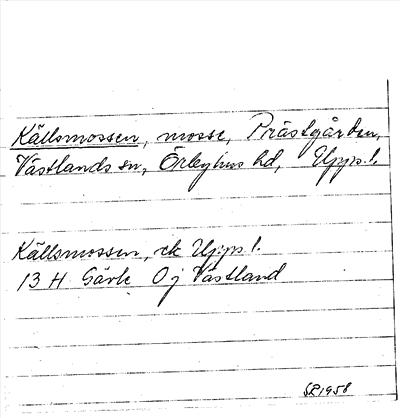 Källsmossen, mosse, Prästgården,
Västlands sn, Örbyhus hd, Upps.l.
Källsmossen, ek Upps.l.
13 H Gävle 0j Västland
SR 1958